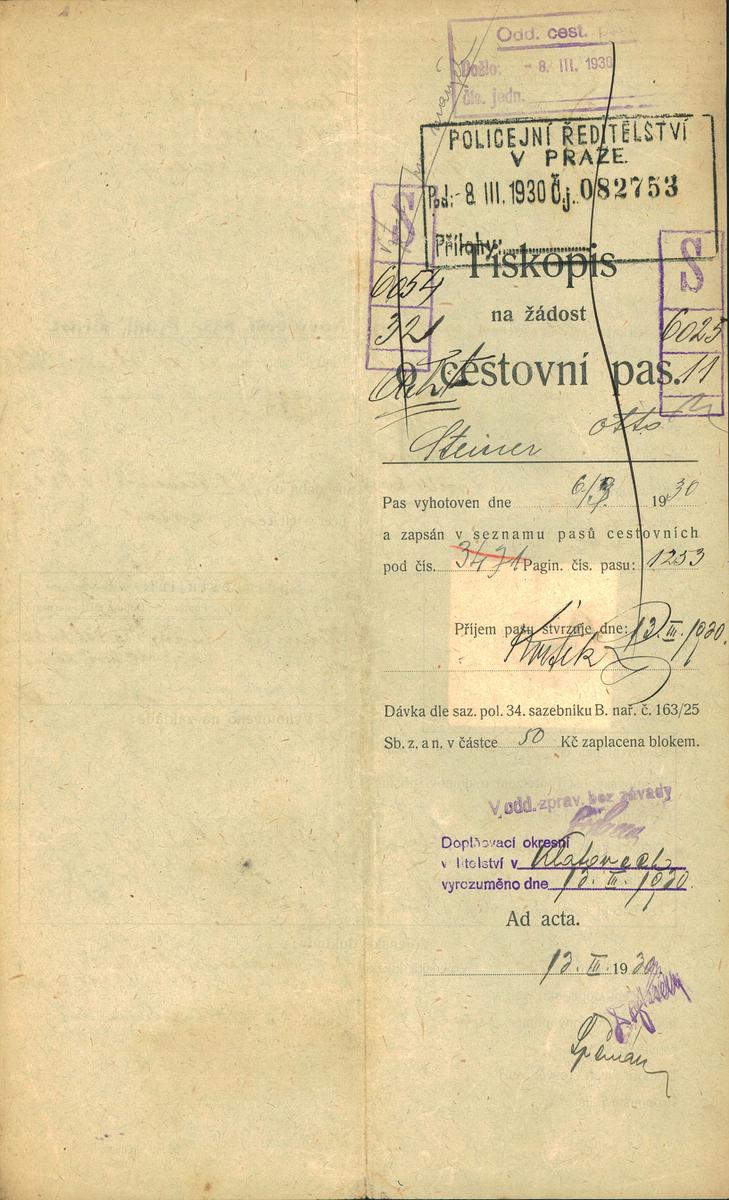 Odd. cest.
Došlo: - 8. III. 1930
čís. jedn.
POLICEJNÍ ŘEDITELSTVÍ
V PRAZE.
Pod: - 8. III. 1930 Čj. 082753
Přílohy:
S
6054
321
S
6025
11
Tiskopis
na žádost
o cestovní pas.
Steiner Otto
Pas vyhotoven dne 6/3 1930
a zapsán v seznamu pasů cestovních
pod čís. 3431 Pagin. čís. pasu: 1253
Příjem pasu stvrzuje dne: 13. III. 1930.
Dávka dle saz. pol. 34. sazebníku B. nař. č. 163/25
Sb. z. a n. v částce 50 Kč zaplacena blokem.
V odd. zprav. bez závady
Doplňovací okresní
velitelství v Klatovech
vyrozuměno dne 13. III. 1930.
Ad acta.
13. III. 1930.